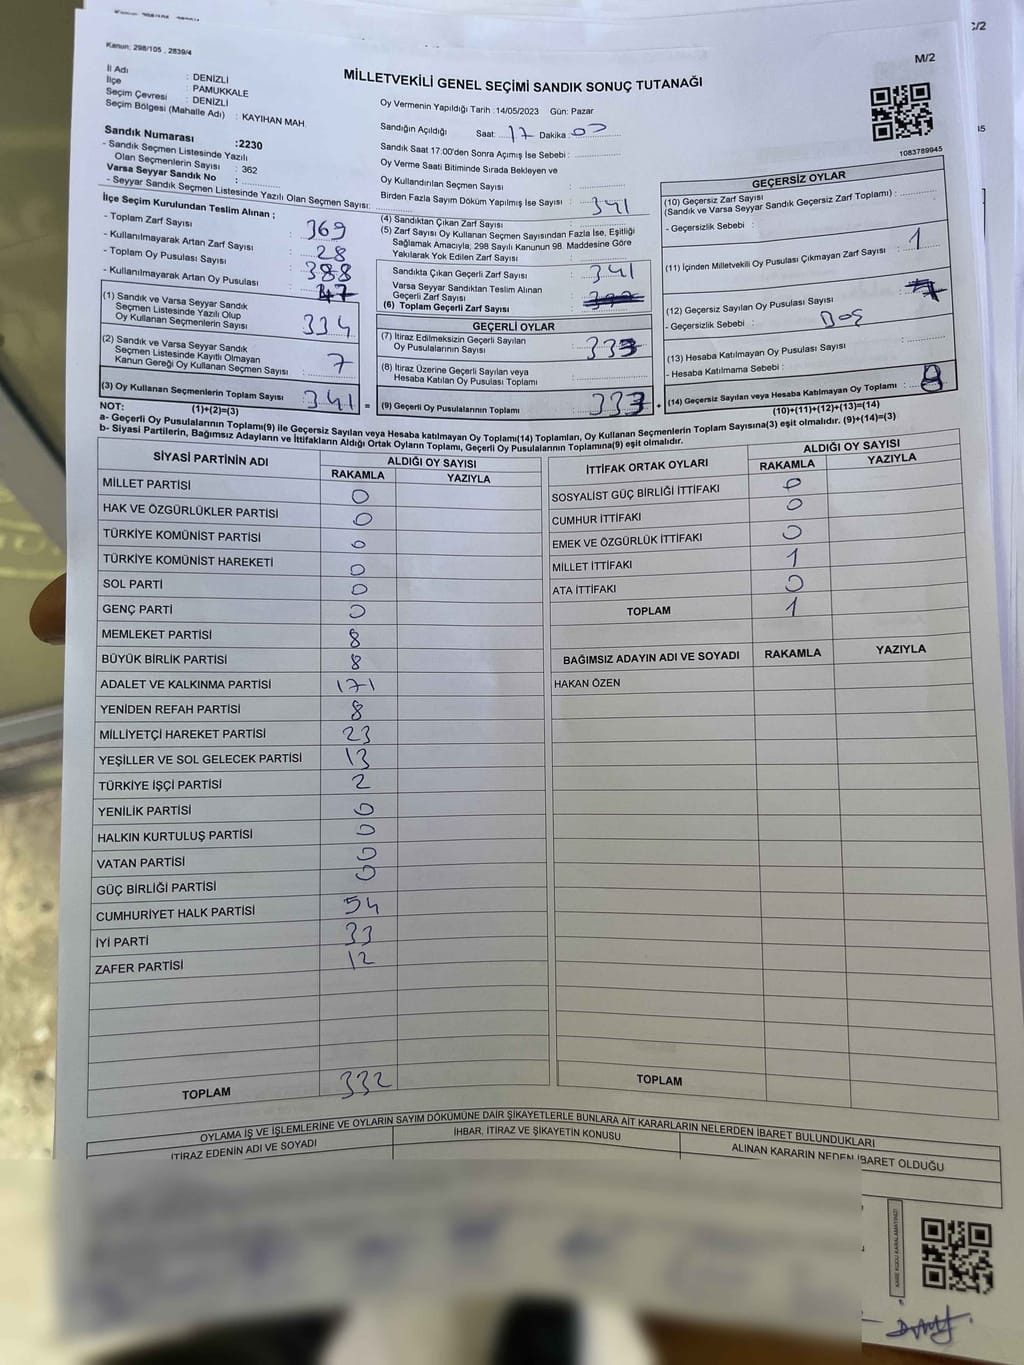 Kanun: 298/105 , 2839/4
M/2
İl Adı : DENİZLİ
İlçe : PAMUKKALE
Seçim Çevresi : DENİZLİ
Seçim Bölgesi (Mahalle Adı) : KAYIHAN MAH.
MİLLETVEKİLİ GENEL SEÇİMİ SANDIK SONUÇ TUTANAĞI
Oy Vermenin Yapıldığı Tarih :14/05/2023 Gün: Pazar
Sandığın Açıldığı Saat: 17 Dakika: 00
Sandık Saat 17:00'den Sonra Açımış İse Sebebi :
Oy Verme Saati Bitiminde Sırada Bekleyen ve
Oy Kullandırılan Seçmen Sayısı :
Birden Fazla Sayım Döküm Yapılmış İse Sayısı :
1083789945
Sandık Numarası :2230
- Sandık Seçmen Listesinde Yazılı
Olan Seçmenlerin Sayısı : 362
Varsa Seyyar Sandık No :
- Seyyar Sandık Seçmen Listesinde Yazılı Olan Seçmen Sayısı:
İlçe Seçim Kurulundan Teslim Alınan ;
- Toplam Zarf Sayısı : 369
- Kullanılmayarak Artan Zarf Sayısı : 28
- Toplam Oy Pusulası Sayısı : 388
- Kullanılmayarak Artan Oy Pusulası : 47
(1) Sandık ve Varsa Seyyar Sandık
Seçmen Listesinde Yazılı Olup
Oy Kullanan Seçmenlerin Sayısı 334
(2) Sandık ve Varsa Seyyar Sandık
Seçmen Listesinde Kayıtlı Olmayan
Kanun Gereği Oy Kullanan Seçmen Sayısı 7
(3) Oy Kullanan Seçmenlerin Toplam Sayısı 341 =
(1)+(2)=(3)
(4) Sandıktan Çıkan Zarf Sayısı : 341
(5) Zarf Sayısı Oy Kullanan Seçmen Sayısından Fazla İse, Eşitliği
Sağlamak Amacıyla; 298 Sayılı Kanunun 98. Maddesine Göre
Yakılarak Yok Edilen Zarf Sayısı :
Sandıkta Çıkan Geçerli Zarf Sayısı : 341
Varsa Seyyar Sandıktan Teslim Alınan
Geçerli Zarf Sayısı :
(6) Toplam Geçerli Zarf Sayısı :
GEÇERLİ OYLAR
(7) İtiraz Edilmeksizin Geçerli Sayılan
Oy Pusulalarının Sayısı : 333
(8) İtiraz Üzerine Geçerli Sayılan veya
Hesaba Katılan Oy Pusulası Toplamı :
(9) Geçerli Oy Pusulalarının Toplamı : 333 +
GEÇERSİZ OYLAR
(10) Geçersiz Zarf Sayısı
(Sandık ve Varsa Seyyar Sandık Geçersiz Zarf Toplamı) :
- Geçersizlik Sebebi :
(11) İçinden Milletvekili Oy Pusulası Çıkmayan Zarf Sayısı : 1
(12) Geçersiz Sayılan Oy Pusulası Sayısı : 7
- Geçersizlik Sebebi : Boş
(13) Hesaba Katılmayan Oy Pusulası Sayısı :
- Hesaba Katılmama Sebebi :
(14) Geçersiz Sayılan veya Hesaba Katılmayan Oy Toplamı : 8
(10)+(11)+(12)+(13)=(14)
NOT:
a- Geçerli Oy Pusulalarının Toplamı(9) ile Geçersiz Sayılan veya Hesaba katılmayan Oy Toplamı(14) Toplamları, Oy Kullanan Seçmenlerin Toplam Sayısına(3) eşit olmalıdır. (9)+(14)=(3)
b- Siyasi Partilerin, Bağımsız Adayların ve İttifakların Aldığı Ortak Oyların Toplamı, Geçerli Oy Pusulalarının Toplamına(9) eşit olmalıdır.
SİYASİ PARTİNİN ADI ALDIĞI OY SAYISI
RAKAMLA YAZIYLA
MİLLET PARTİSİ 0
HAK VE ÖZGÜRLÜKLER PARTİSİ 0
TÜRKİYE KOMÜNİST PARTİSİ 0
TÜRKİYE KOMÜNİST HAREKETİ 0
SOL PARTİ 0
GENÇ PARTİ 0
MEMLEKET PARTİSİ 8
BÜYÜK BİRLİK PARTİSİ 8
ADALET VE KALKINMA PARTİSİ 171
YENİDEN REFAH PARTİSİ 8
MİLLİYETÇİ HAREKET PARTİSİ 23
YEŞİLLER VE SOL GELECEK PARTİSİ 13
TÜRKİYE İŞÇİ PARTİSİ 2
YENİLİK PARTİSİ 0
HALKIN KURTULUŞ PARTİSİ 0
VATAN PARTİSİ 0
GÜÇ BİRLİĞİ PARTİSİ 0
CUMHURİYET HALK PARTİSİ 54
İYİ PARTİ 33
ZAFER PARTİSİ 12
TOPLAM 332
İTTİFAK ORTAK OYLARI ALDIĞI OY SAYISI
RAKAMLA YAZIYLA
SOSYALİST GÜÇ BİRLİĞİ İTTİFAKI 0
CUMHUR İTTİFAKI 0
EMEK VE ÖZGÜRLÜK İTTİFAKI 0
MİLLET İTTİFAKI 1
ATA İTTİFAKI 0
TOPLAM 1
BAĞIMSIZ ADAYIN ADI VE SOYADI RAKAMLA YAZIYLA
HAKAN ÖZEN
TOPLAM
OYLAMA İŞ VE İŞLEMLERİNE VE OYLARIN SAYIM DÖKÜMÜNE DAİR ŞİKAYETLERLE BUNLARA AİT KARARLARIN NELERDEN İBARET BULUNDUKLARI
İTİRAZ EDENİN ADI VE SOYADI İHBAR, İTİRAZ VE ŞİKAYETİN KONUSU ALINAN KARARIN NEDEN İBARET OLDUĞU